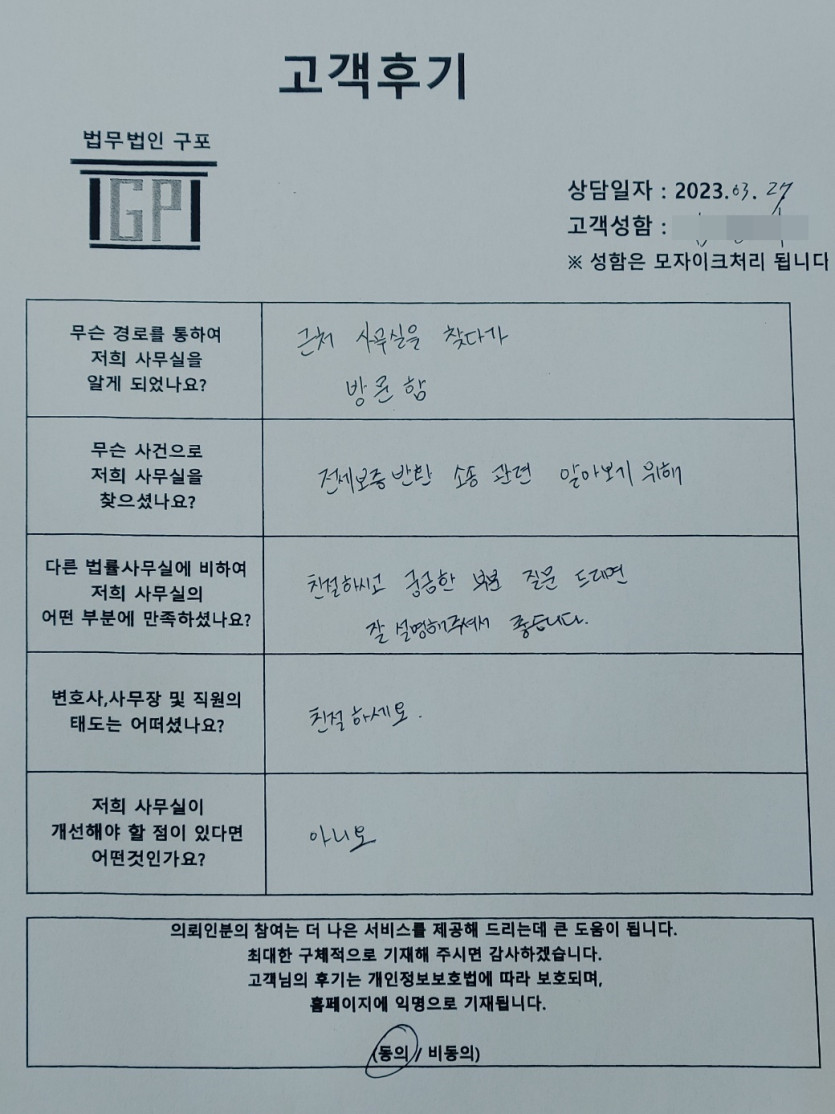 고객후기
법무법인 구포
GP
상담일자 : 2023.03.27
고객성함 :
※ 성함은 모자이크처리 됩니다
무슨 경로를 통하여
저희 사무실을
알게 되었나요?
근처 사무실을 찾다가
방문함
무슨 사건으로
저희 사무실을
찾으셨나요?
전세보증반환 소송 관련 알아보기 위해
다른 법률사무실에 비하여
저희 사무실의
어떤 부분에 만족하셨나요?
친절하시고 궁금한 부분 질문 드리면
잘 설명해주셔서 좋습니다.
변호사,사무장 및 직원의
태도는 어떠셨나요?
친절하세요.
저희 사무실이
개선해야 할 점이 있다면
어떤것인가요?
아니요
의뢰인분의 참여는 더 나은 서비스를 제공해 드리는데 큰 도움이 됩니다.
최대한 구체적으로 기재해 주시면 감사하겠습니다.
고객님의 후기는 개인정보보호법에 따라 보호되며,
홈페이지에 익명으로 기재됩니다.
(동의 / 비동의)